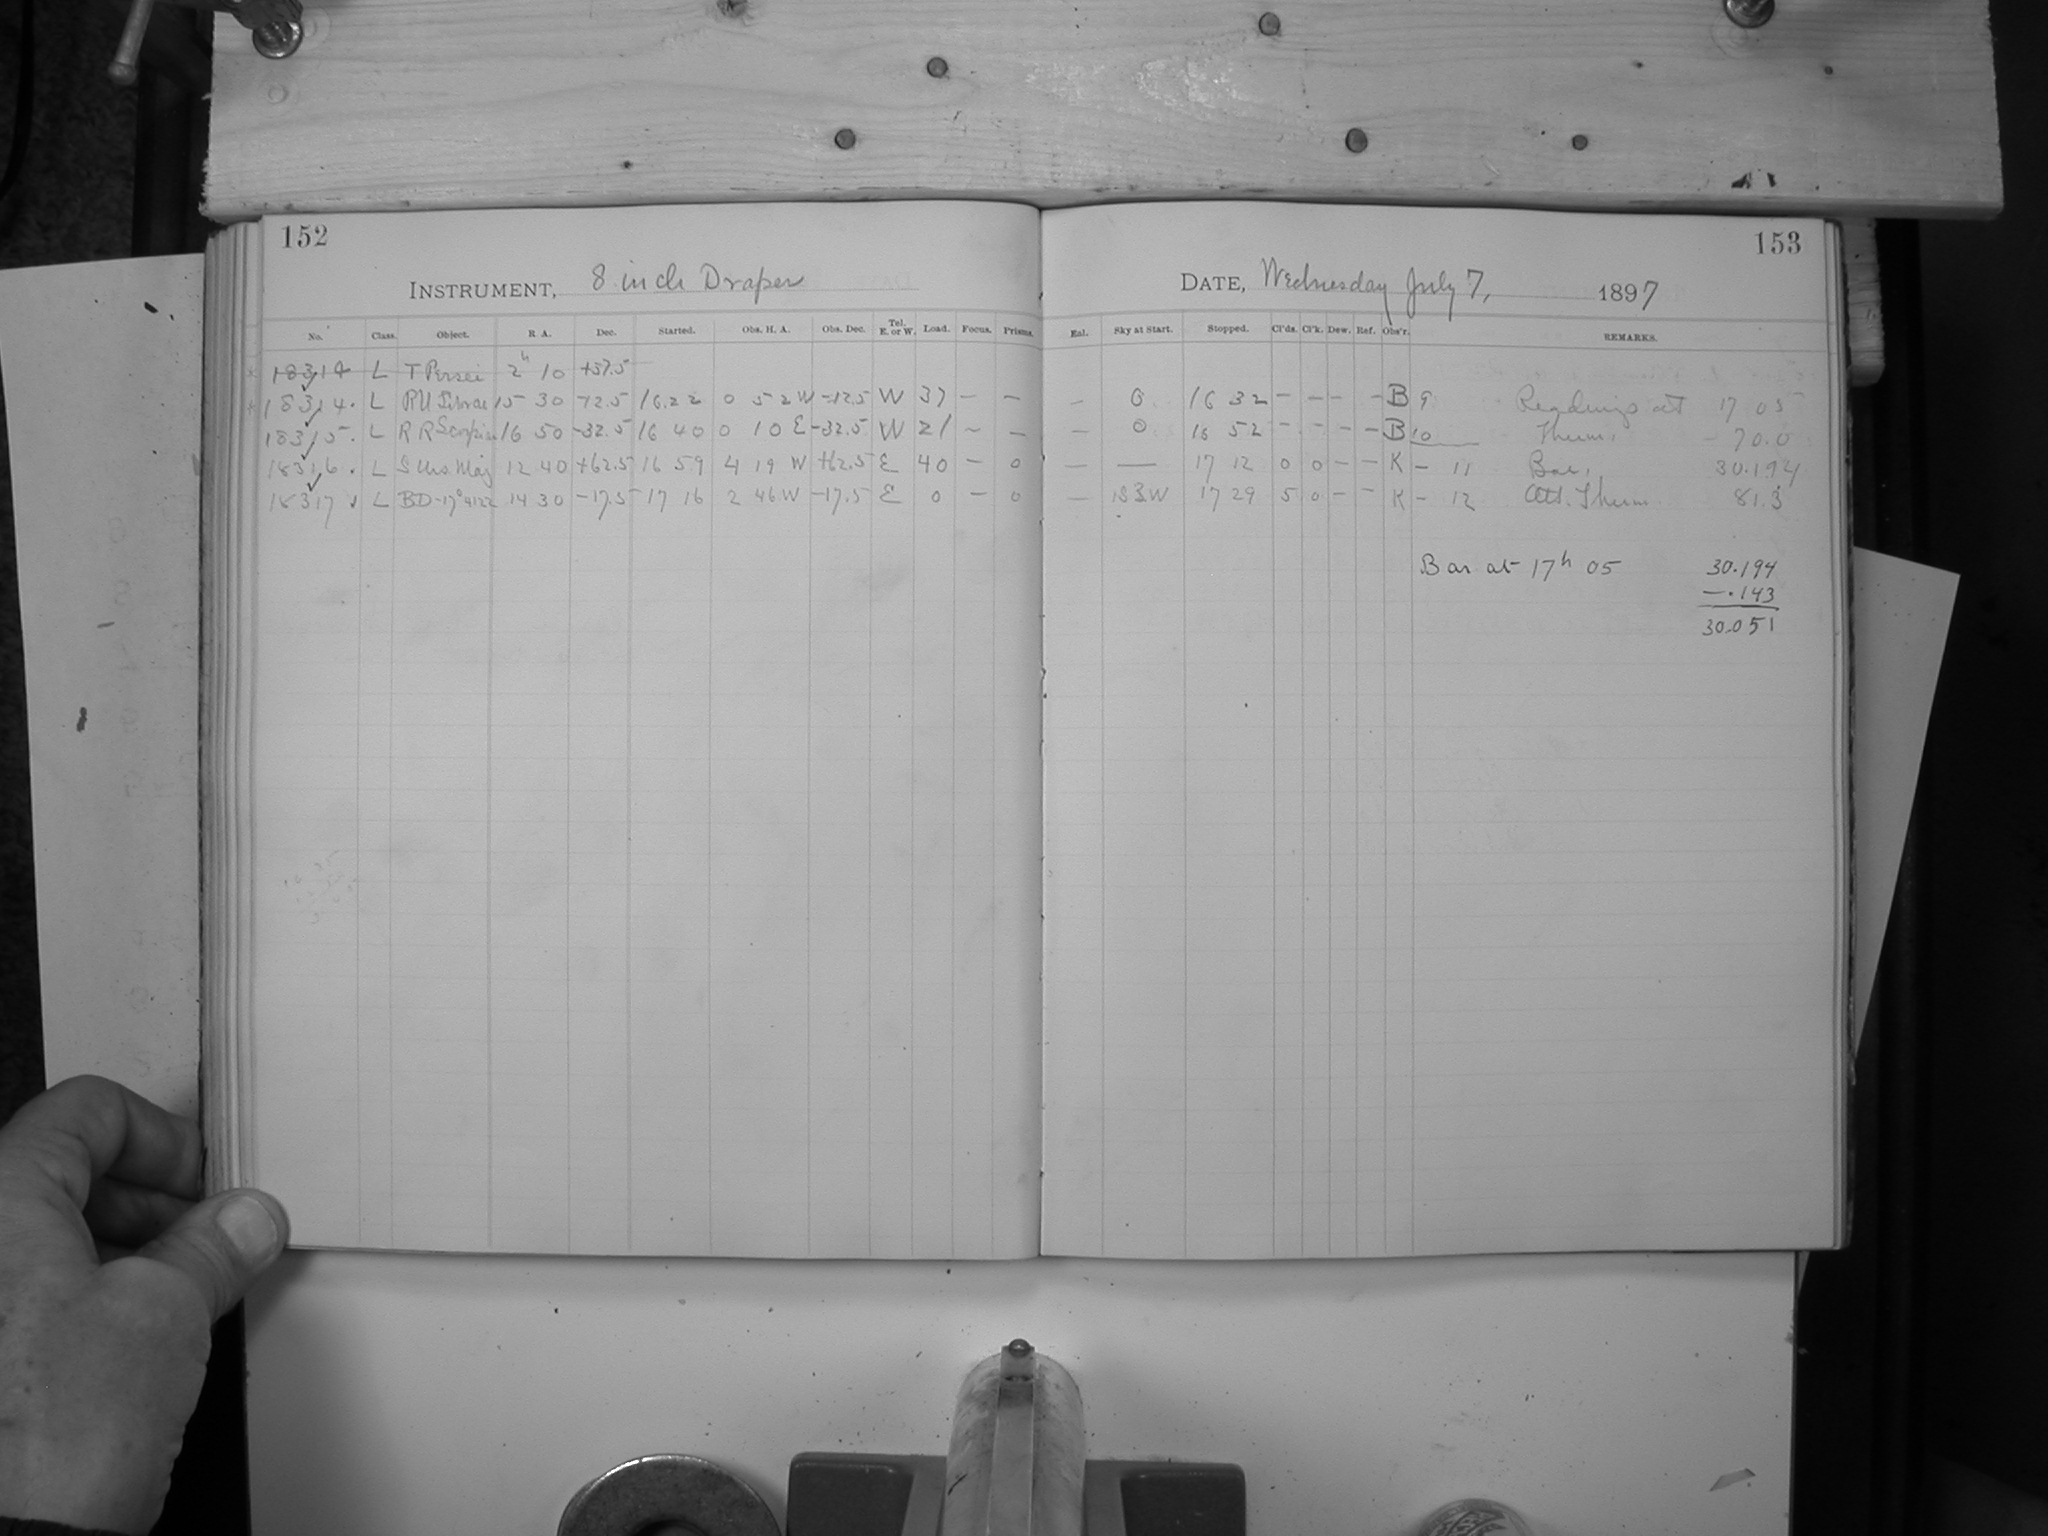 152
153
INSTRUMENT, 8 inch Draper
DATE, Wednesday July 7, 1897
No. Class. Object. R. A. Dec. Started. Obs. H. A. Obs. Dec. Tel. E. or W. Load. Focus. Prisms. Enl. Sky at Start. Stopped. Cl'ds. Cl'k. Dew. Ref. Obs'r. REMARKS.
18314 L T Persei 2h 10 +57.5
18314. L RU Librae 15 30 -12.5 16.22 0 52 W -12.5 W 37 — — — 0 16 32 - - - - B 9 Readings at 17 05
18315. L RR Scorpii 16 50 -32.5 16 40 0 10 E -32.5 W 21 - — — 0 16 52 - - - - B 10 Therm. 70.0
18316. L S Urs. Maj 12 40 +62.5 16 59 4 19 W +62.5 E 40 - 0 — — 17 12 0 0 - - K - 11 Bar. 30.194
18317 L BD -17° 4122 14 30 -17.5 17 16 2 46 W -17.5 E 0 - 0 — 17 29 5 0 - - K - 12 Att. Therm. 81.3
Bar at 17h 05 30.194
-.143
30.051